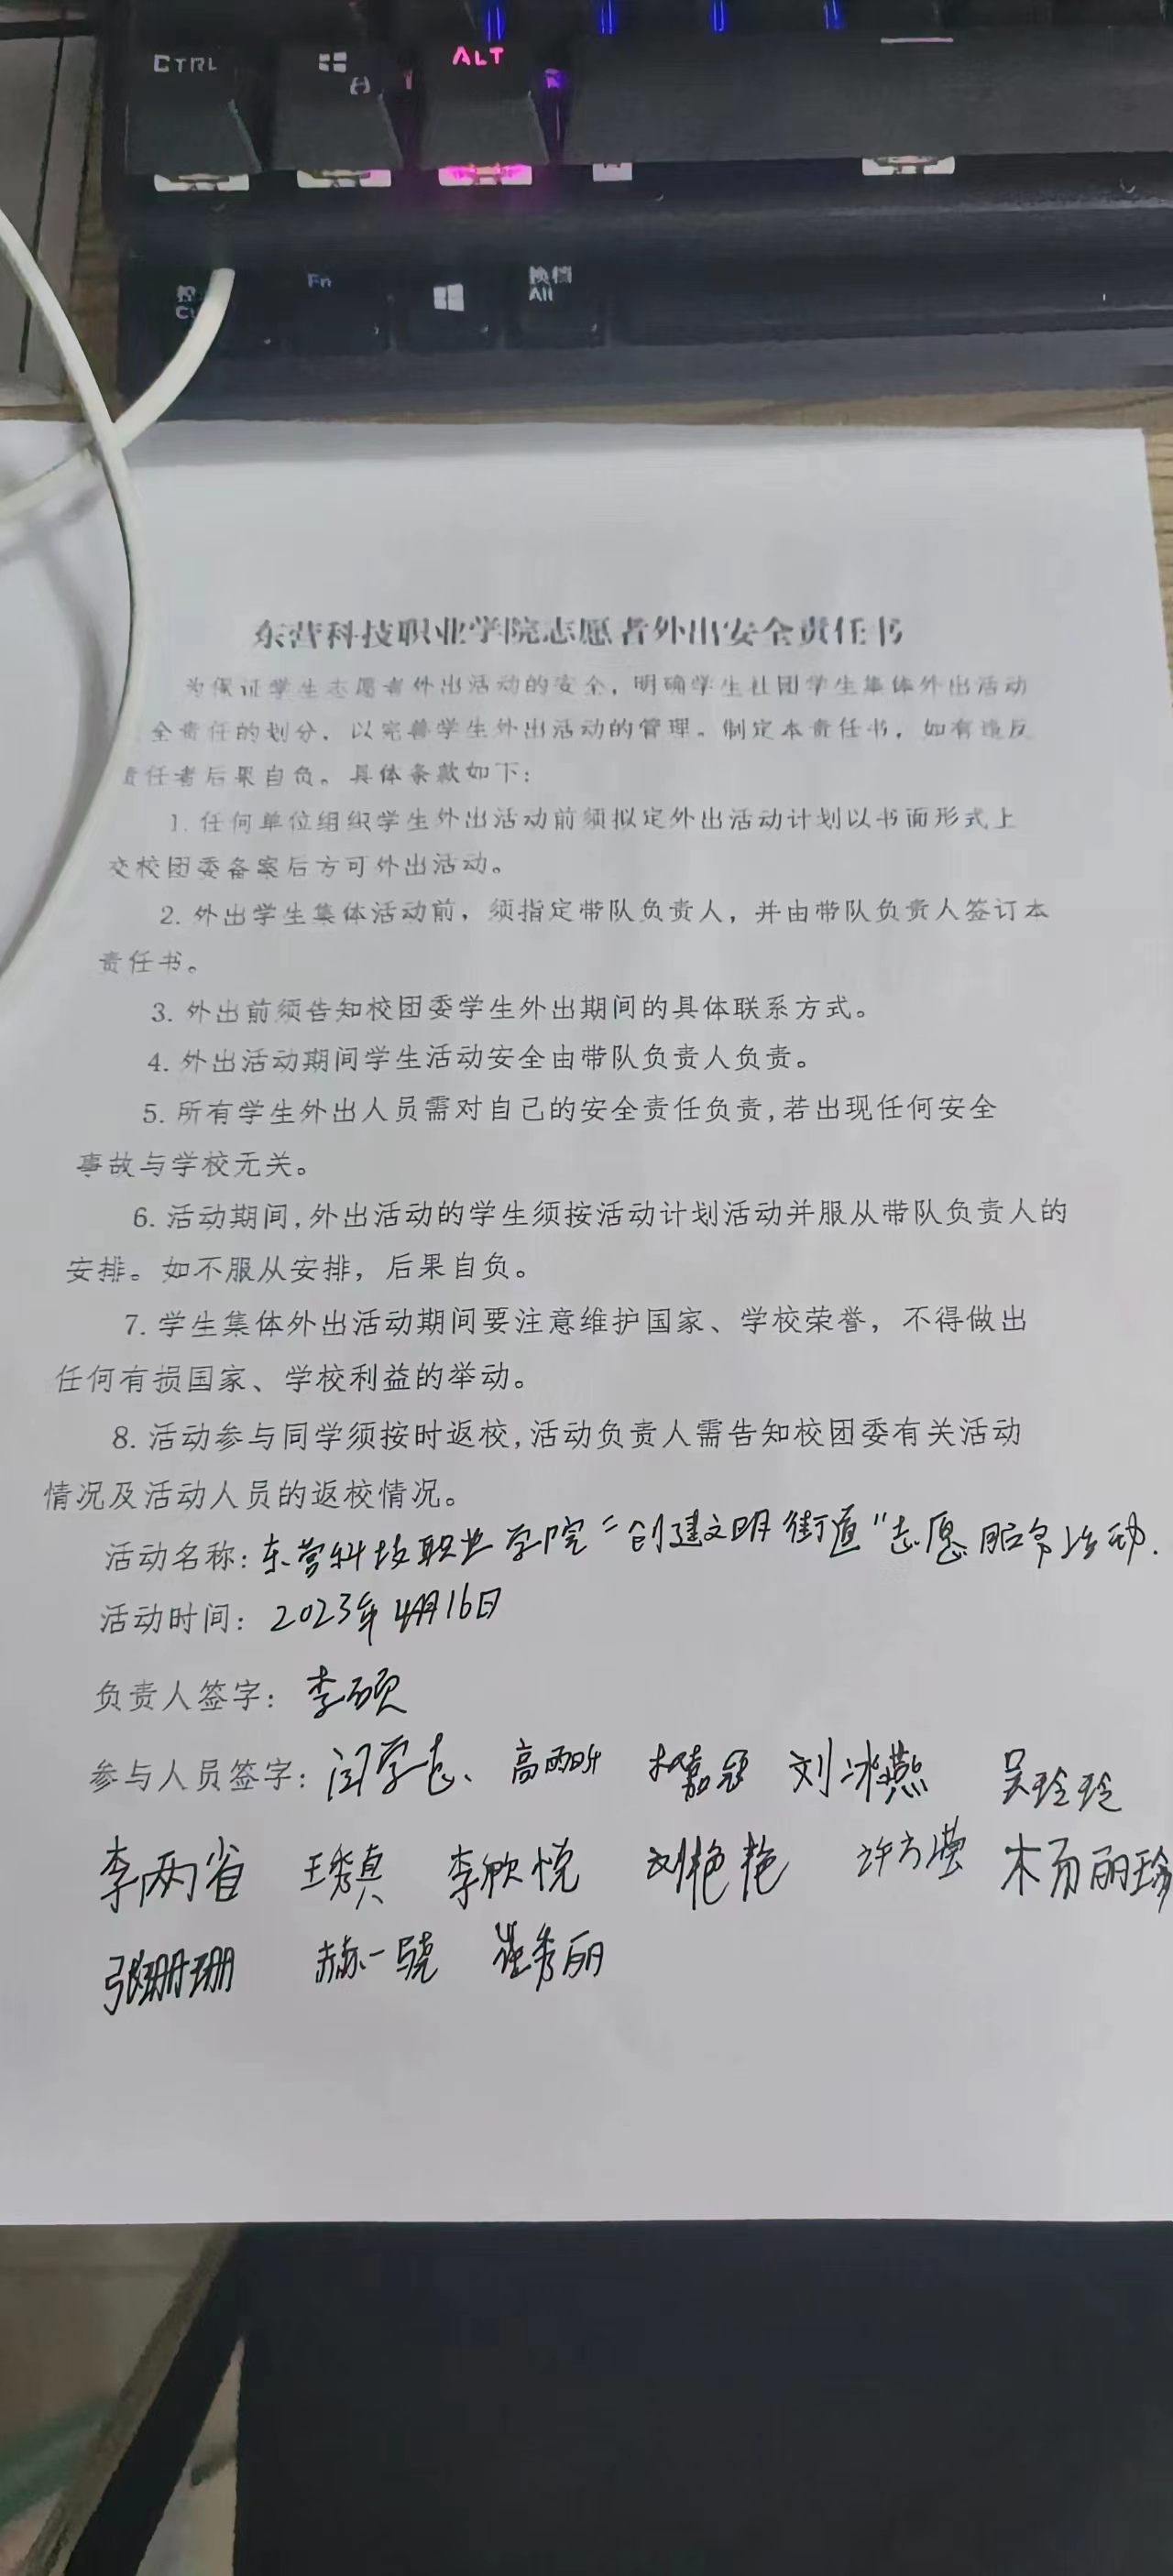 CTRL
ALT
Fn
换档
Alt
东营科技职业学院志愿者外出安全责任书
为保证学生志愿者外出活动的安全，明确学生社团学生集体外出活动
全责任的划分，以完善学生外出活动的管理。制定本责任书，如有违反
责任者后果自负。具体条款如下：
1. 任何单位组织学生外出活动前须拟定外出活动计划以书面形式上
交校团委备案后方可外出活动。
2. 外出学生集体活动前，须指定带队负责人，并由带队负责人签订本
责任书。
3. 外出前须告知校团委学生外出期间的具体联系方式。
4. 外出活动期间学生活动安全由带队负责人负责。
5. 所有学生外出人员需对自己的安全责任负责,若出现任何安全
事故与学校无关。
6. 活动期间,外出活动的学生须按活动计划活动并服从带队负责人的
安排。如不服从安排，后果自负。
7. 学生集体外出活动期间要注意维护国家、学校荣誉，不得做出
任何有损国家、学校利益的举动。
8. 活动参与同学须按时返校,活动负责人需告知校团委有关活动
情况及活动人员的返校情况。
活动名称: 东营科技职业学院“创建文明街道”志愿服务活动.
活动时间: 2023年4月16日
负责人签字: 李硕
参与人员签字: 闫学志、 高雨昕 刘冰燕 吴玲玲
李两省 王秀真 李欣悦 刘艳艳 许方莹 杨丽珍
张珊珊 赫一骁 崔秀丽